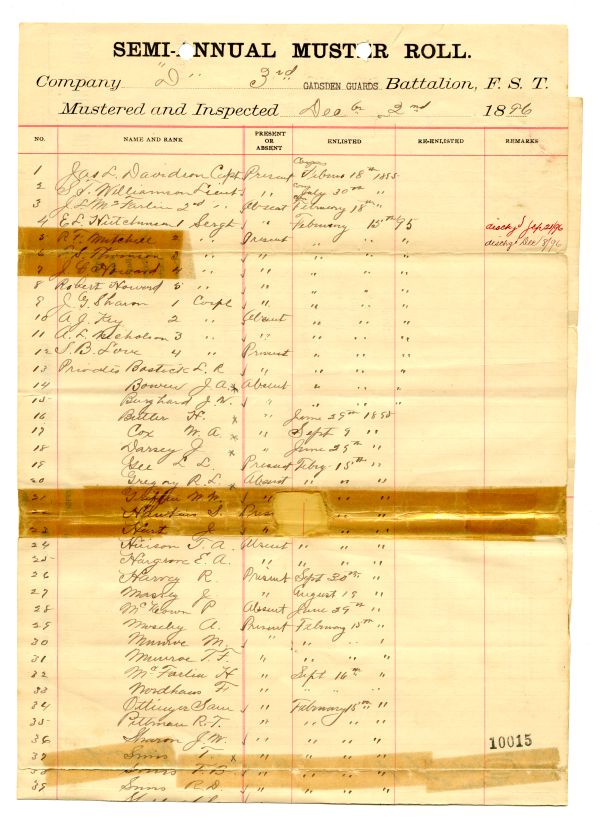 SEMI-ANNUAL MUSTER ROLL.
Company "D" 3rd GADSDEN GUARDS Battalion, F. S. T.
Mustered and Inspected Decbr 2nd 1896
NO. NAME AND RANK PRESENT OR ABSENT ENLISTED RE-ENLISTED REMARKS
1 Jas L. Davidson Capt Present 18th 1895
2 S. J. Williamson Lieut " July 30th "
3 J L McFarlin 2nd " Absent February 18th "
4 E L Hutchinson 1 Sergt " February 15th /95 dischgd Sep 21/96
5 R. T. Mitchell 2 " Present " " " dischgd Dec 8/96
6 Thomson 3 " " " " "
7 J. E. Howard 4 " " " " "
8 Robert Howard 5 " " " " "
9 J. G. Sharon 1 Corpl " " " "
10 A J. Key 2 " Absent " " "
11 A. L. Nicholson 3 " " " " "
12 S. B. Love 4 " Present " " "
13 Privates Bostick L. R " " " "
14 Bowen J A. x Absent " " "
15 Burghard J. W. " " " "
16 Butler H. x " June 29th 1895
17 Cox W. A. x " Sept 9 " "
18 Darsey J x " June 29th "
19 Gee L L. Present Feby 15th "
20 Gregory R L. x Absent " " "
21 Griffin W W. " " "
22 Hawkins S. Pres " "
23 Hart J " " "
24 Hinson T. A. Absent " " "
25 Hargrove E. A. " " " "
26 Harvey R. Present Sept 30th "
27 Massey J " August 19 "
28 McKeown P Absent June 29th "
29 Moseby A. Present February 15th "
30 Munroe M. " " " "
31 Munroe T. F. " " " "
32 McFarlin H " Sept 16th "
33 Woodham F " " " "
34 Ottinger Saml " February 15th "
35 Pittman R. T. " " " "
36 Sharon J. W. " " " "
37 Sims T. x " " " "
38 " " " "
39 Sims R. D. " " " "
10015